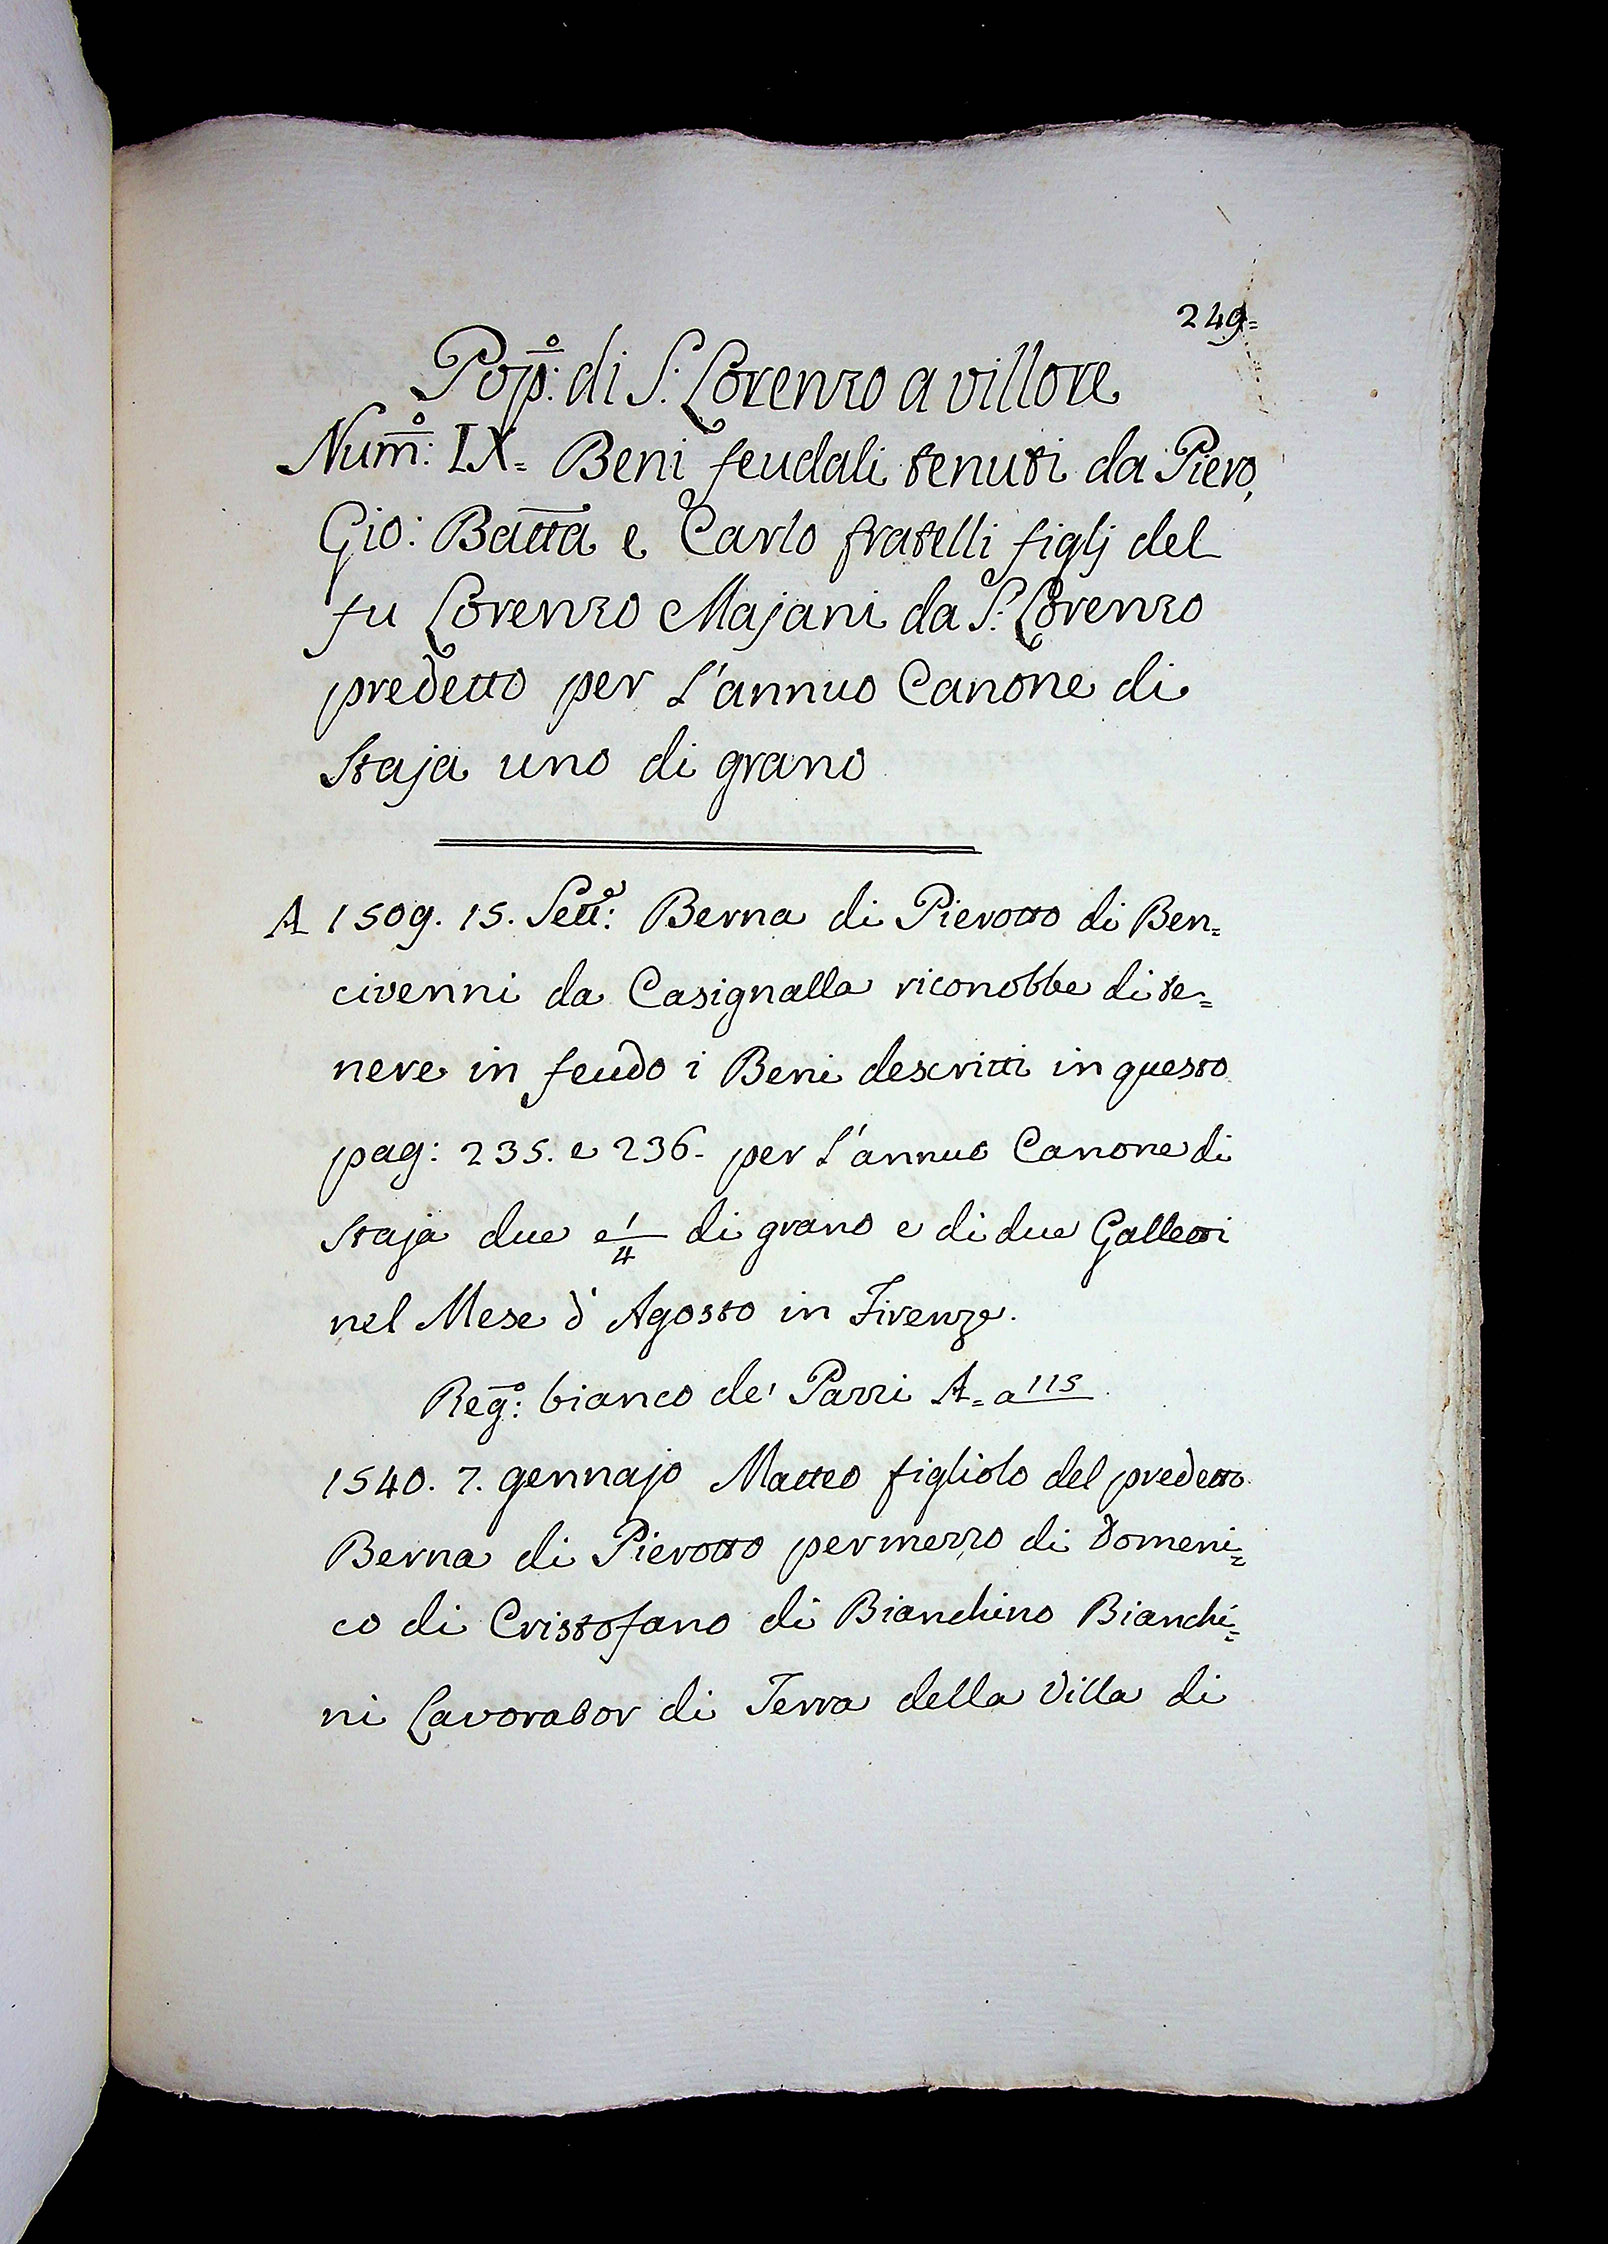 249=
Pop̅o: di S: Lorenzo a villore
Num̅o: IX= Beni feudali tenuti da Piero,
Gio: Batt̅a e Carlo fratelli figlj del
fu Lorenzo Majani da S: Lorenzo
predetto per l'annuo Canone di
Staja uno di grano
A 1509. 15. Sett̅e: Berna di Pierotto di Ben=
civenni da Casignalla riconobbe di te=
nere in feudo i Beni descritti in questo
pag: 235. e 236. per l'annuo Canone di
Staja due e 1/4 di grano e di due Galletti
nel Mese d'Agosto in Firenze.
Reg̅o: bianco de' Pazzi A= a 115
1540. 7. gennajo Matteo figliolo del predetto
Berna di Pierotto per mezzo di Domeni=
co di Cristofano di Bianchino Bianchi=
ni Lavorator di Terra della Villa di